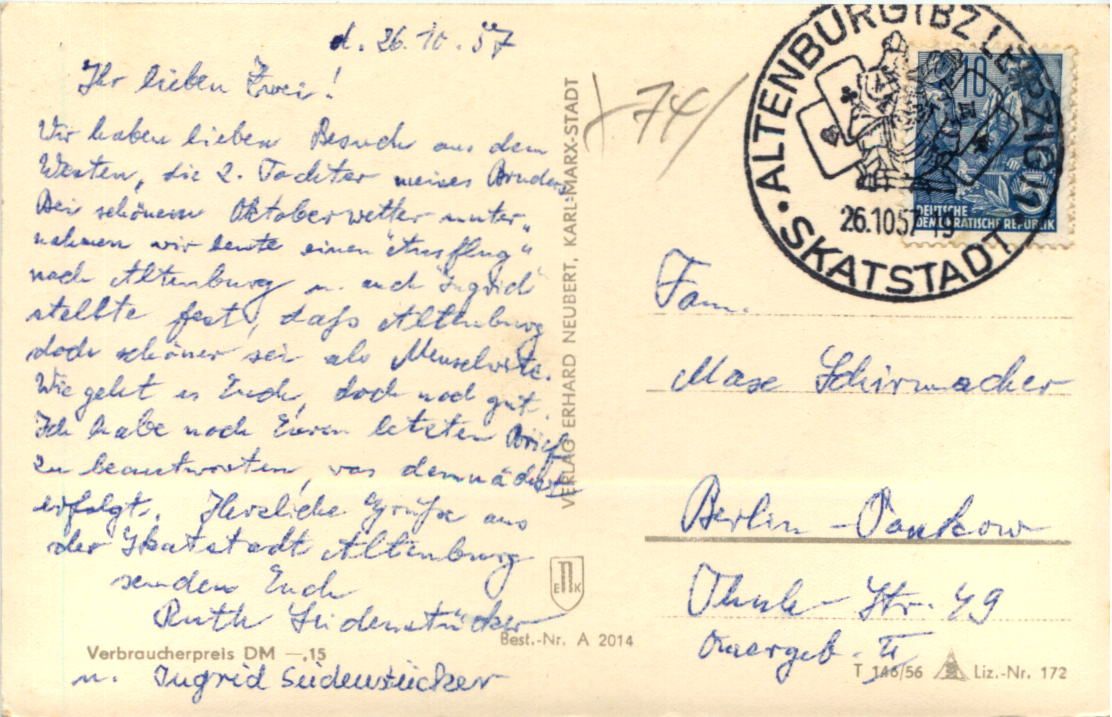 d. 26.10.57
Ihr lieben Zwei!
Wir haben lieben Besuch aus dem
Westen, die 2. Tochter meines Bruders.
Bei schönem Oktoberwetter unter„
nahmen wir heute einen "Ausflug"
nach Altenburg u. auch Ingrid
stellte fest, daß Altenburg
doch schöner sei als Meuselwitz.
Wie geht es Euch, doch noch gut.
Ich habe noch Euren letzten Brief
zu beantworten, was demnächst
erfolgt. Herzliche Grüße aus
der Skatstadt Altenburg
senden Euch
Ruth Seidenstücker
u. Ingrid Seidenstücker
Verbraucherpreis DM —,15
Best.-Nr. A 2014
VERLAG ERHARD NEUBERT, KARL-MARX-STADT
E K
74
ALTENBURG (BZ LEIPZIG)
26.10.57-19
SKATSTADT
10
DEUTSCHE
DEMOKRATISCHE REPUBLIK
5
Fam.
Max Schirmacher
Berlin-Pankow
Str. 49
II
T 146/56
Liz.-Nr. 172